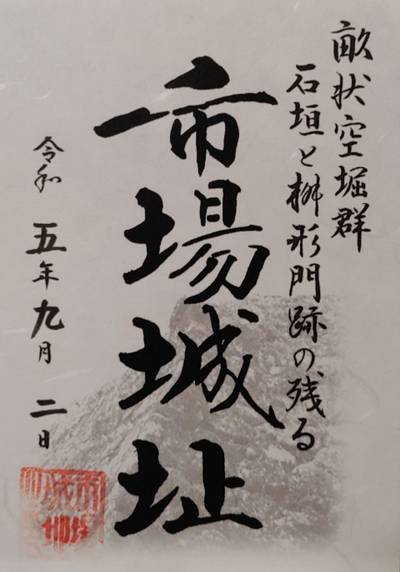 畝状空堀群
石垣と桝形門跡の残る
市場城址
令和五年九月二日